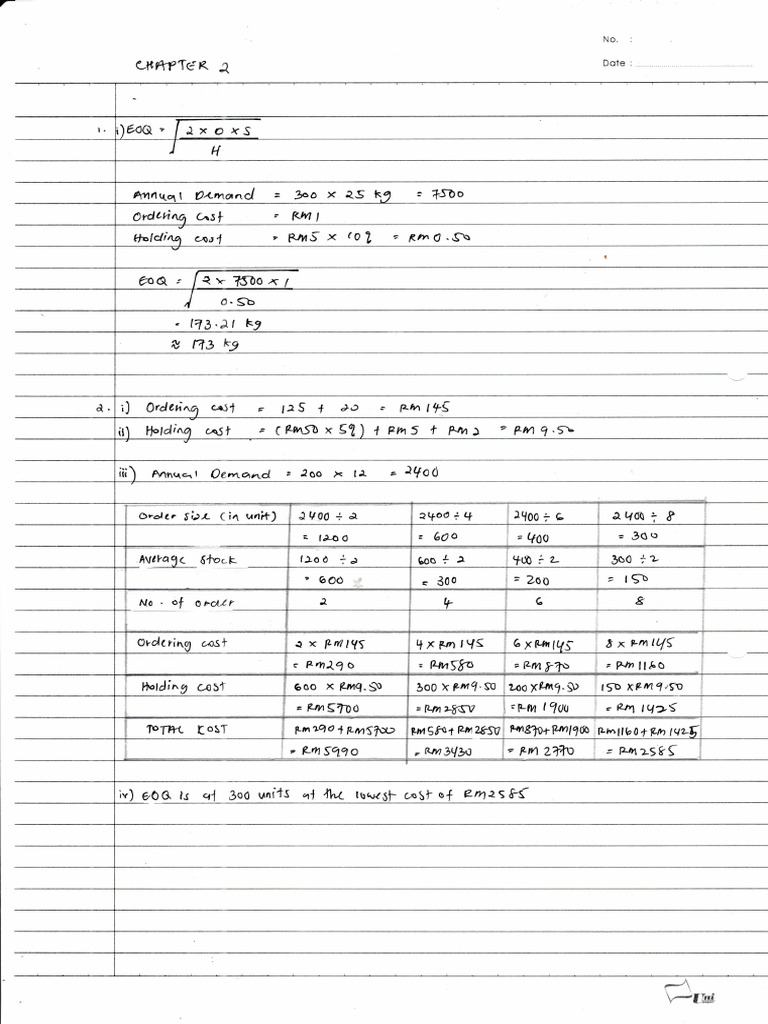 No. :
Date :
CHAPTER 2
1. i) EOQ = √ 2 × D × S
H
Annual Demand = 300 × 25 kg = 7500
Ordering Cost = RM1
Holding cost = RM5 × 10% = RM0.50
EOQ = √ 2 × 7500 × 1
0.50
= 173.21 kg
≈ 173 kg
2. i) Ordering cost = 125 + 20 = RM145
ii) Holding cost = (RM50 × 5%) + RM5 + RM2 = RM9.50
iii) Annual Demand = 200 × 12 = 2400
Order size (in unit) 2400 ÷ 2 2400 ÷ 4 2400 ÷ 6 2400 ÷ 8
= 1200 = 600 = 400 = 300
Average stock 1200 ÷ 2 600 ÷ 2 400 ÷ 2 300 ÷ 2
= 600 = 300 = 200 = 150
No. of order 2 4 6 8
Ordering cost 2 × RM145 4 × RM145 6 × RM145 8 × RM145
= RM290 = RM580 = RM870 = RM1160
Holding cost 600 × RM9.50 300 × RM9.50 200 × RM9.50 150 × RM9.50
= RM5700 = RM2850 = RM1900 = RM1425
TOTAL KOST RM290 + RM5700 RM580 + RM2850 RM870 + RM1900 RM1160 + RM1425
= RM5990 = RM3430 = RM2770 = RM2585
iv) EOQ is at 300 units at the lowest cost of RM2585
Uni